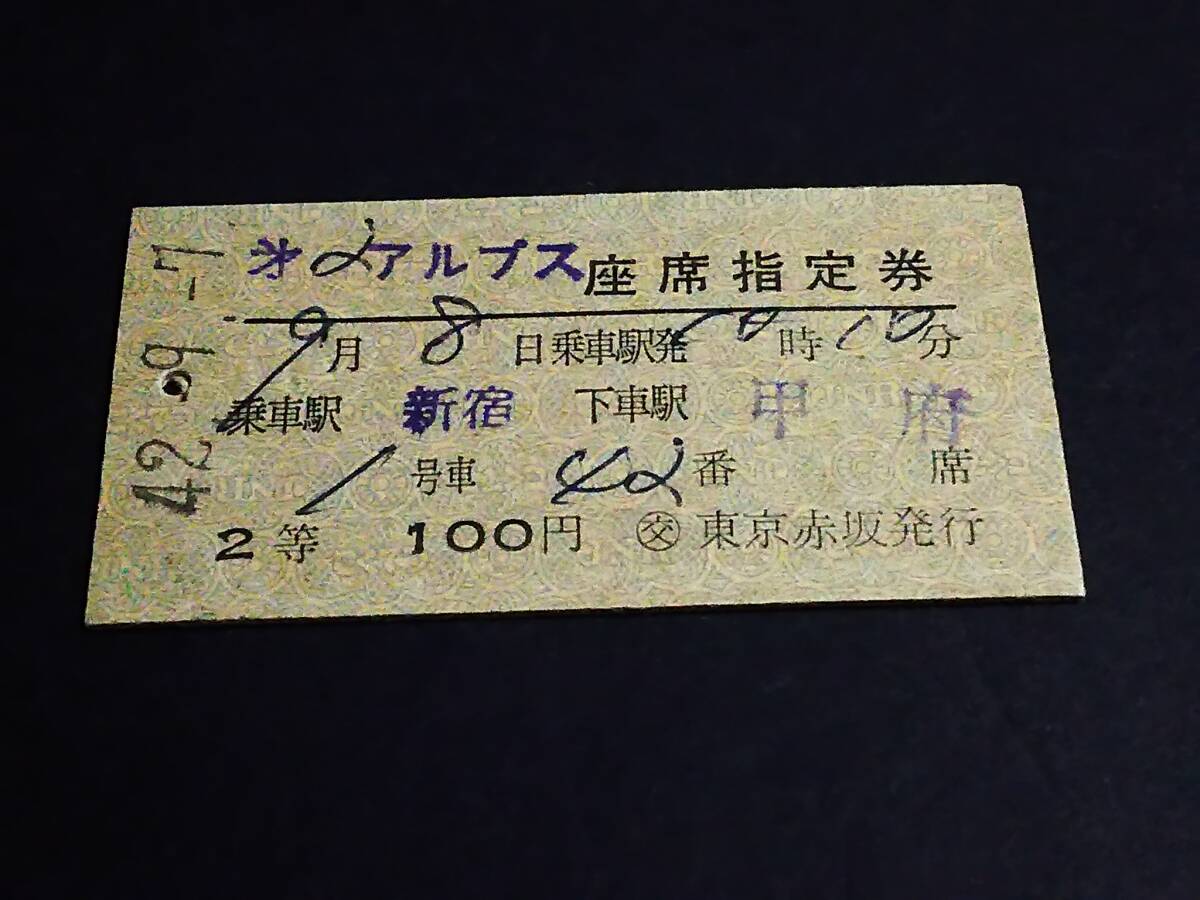 42.-9.-7
第2アルプス座席指定券
9月8日乗車駅発10時10分
乗車駅 新宿 下車駅 甲府
1号車 42番席
2等 100円 ㊋東京赤坂発行